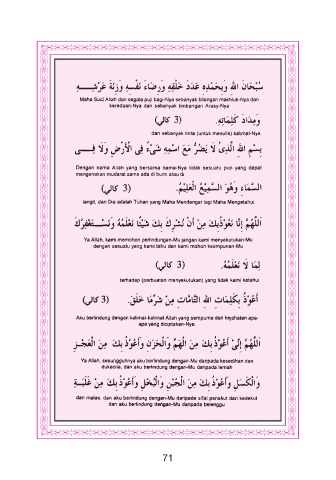 سُبْحَانَ اللهِ وَبِحَمْدِهِ عَدَدَ خَلْقِهِ وَرِضَاءَ نَفْسِهِ وَزِنَةَ عَرْشِـــــهِ
Maha Suci Allah dan segala puji bagi-Nya sebanyak bilangan makhluk-Nya dan
keredaan-Nya dan sebanyak timbangan Arasy-Nya
وَمِدَادَ كَلِمَاتِهِ. (3 كالي)
dan sebanyak tinta (untuk menulis) kalimat-Nya.
بِسْمِ اللهِ الَّذِيْ لَا يَضُرُّ مَعَ اسْمِهِ شَيْءٌ فِى الْأَرْضِ وَلَا فِـــى
Dengan nama Allah yang bersama nama-Nya tidak sesuatu pun yang dapat
mengenakan mudarat sama ada di bumi atau di
السَّمَاءِ وَهُوَ السَّمِيْعُ الْعَلِيْمُ. (3 كالي)
langit, dan Dia adalah Tuhan yang Maha Mendengar lagi Maha Mengetahui.
اَللَّهُمَّ إِنَّا نَعُوْذُبِكَ مِنْ أَنْ نُشْرِكَ بِكَ شَيْئًا نَعْلَمُهُ وَنَسْـــتَغْفِرُكَ
Ya Allah, kami memohon perlindungan-Mu jangan kami menyekutukan-Mu
dengan sesuatu yang kami tahu dan kami mohon keampunan-Mu
لِمَا لَا نَعْلَمُهُ. (3 كالي)
terhadap (perbuatan menyekutukan) yang tidak kami ketahui.
أَعُوْذُ بِكَلِمَاتِ اللهِ التَّامَّاتِ مِنْ شَرِّمَا خَلَقَ. (3 كالي)
Aku berlindung dengan kalimat-kalimat Allah yang sempurna dari kejahatan apa-
apa yang diciptakan-Nya.
اَللَّهُمَّ إِنِّيْ أَعُوْذُ بِكَ مِنَ الْهَمِّ وَالْحَزَنِ وَأَعُوْذُ بِكَ مِنَ الْعَجْـزِ
Ya Allah, sesungguhnya aku berlindung dengan-Mu daripada kesedihan dan
dukacita, dan aku berlindung dengan-Mu daripada lemah
وَالْكَسَلِ وَأَعُوْذُ بِكَ مِنَ الْجُبْنِ وَالْبُخْلِ وَأَعُوْذُ بِكَ مِنْ غَلَبَـــةِ
dan malas, dan aku berlindung dengan-Mu daripada sifat penakut dan kedekut
dan aku berlindung dengan-Mu daripada belenggu
71